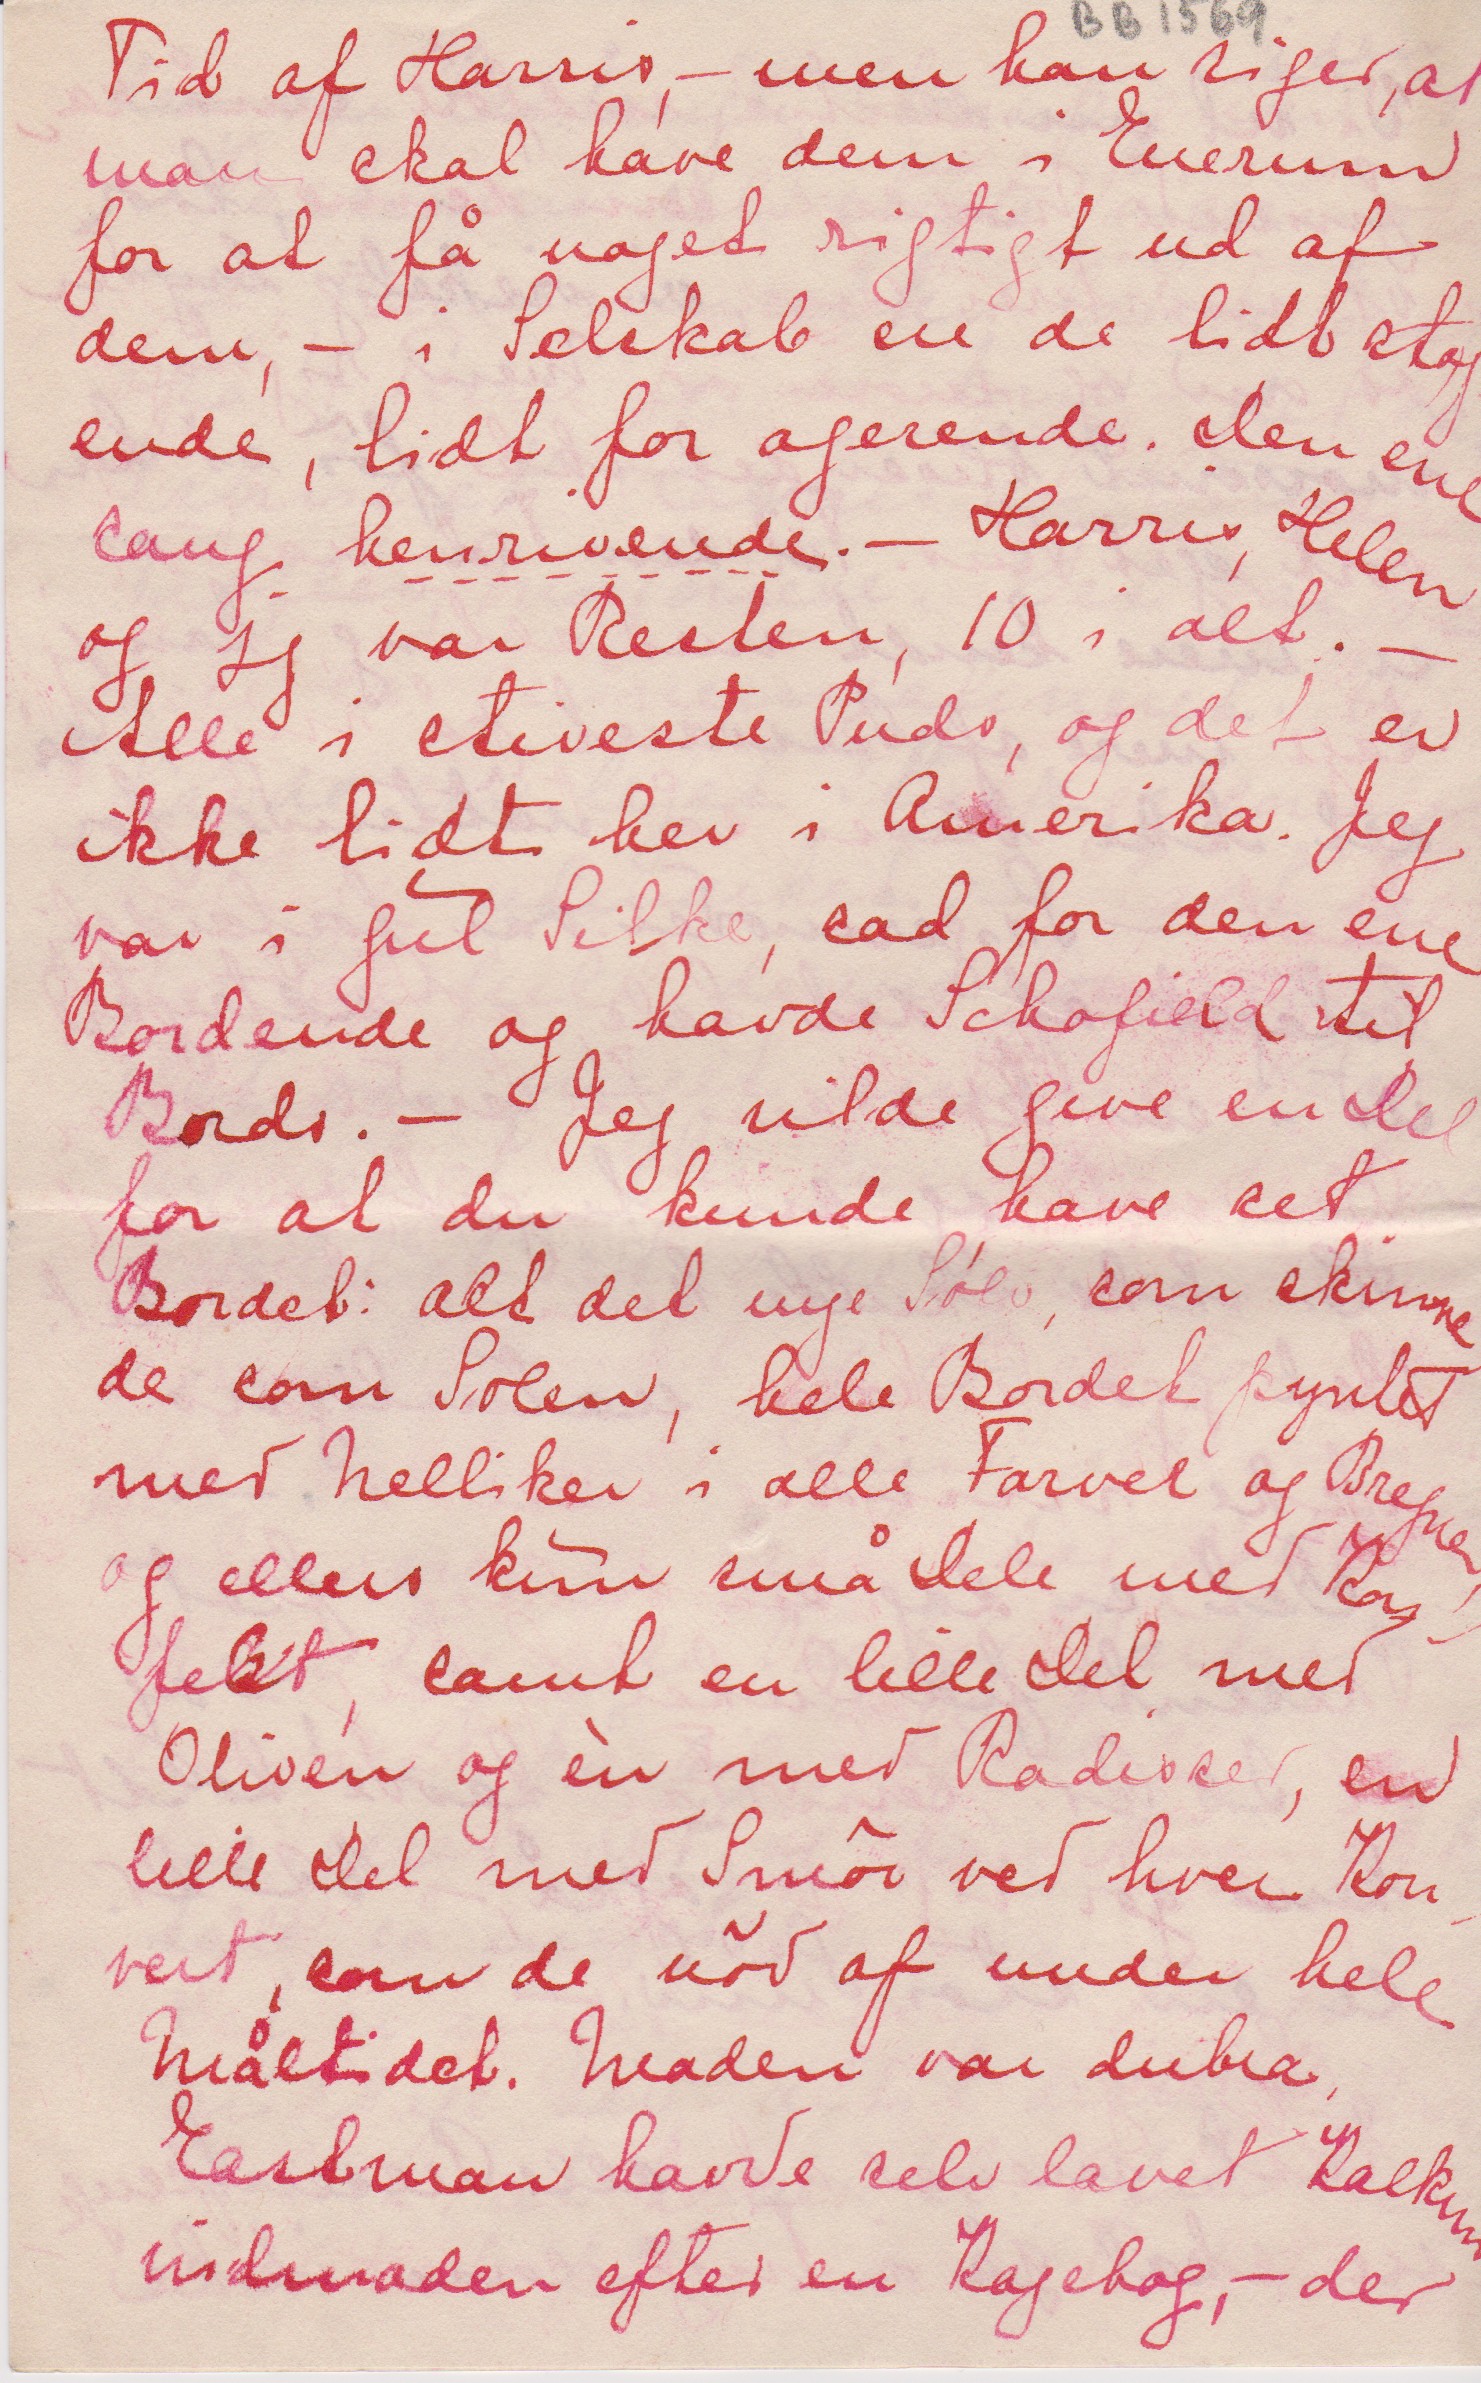 BB 1569
Tid af Harris, – men han siger, at
man skal have dem i Enerum
for at få noget rigtigt ud af
dem, – i Selskab er de lidt støj
ende, lidt for agerende. Den ene
sang henrivende. – Harris, Helen
og jeg var Resten, 10 i alt. –
Alle i stiveste Puds, og det er
ikke lidt her i Amerika. Jeg
var i gul Silke, sad for den ene
Bordende og havde Schofield til
Bords. – Jeg vilde give en Del
for at du kunde have set
Bordet: alt det nye Sølv, som skinne
de som Solen, hele Bordet pyntet
med Nelliker i alle Farver og Bregner,
og ellers kun små Dele med Kon
fekt, samt en lille Del med
Oliven og èn med Radiser, en
lille Del med Smör ved hver Kon
vert, som de nöd af under hele
Måltidet. Maden var dubra,
Eastman havde selv lavet Kalkun
indmaden efter en Kogebog, – der